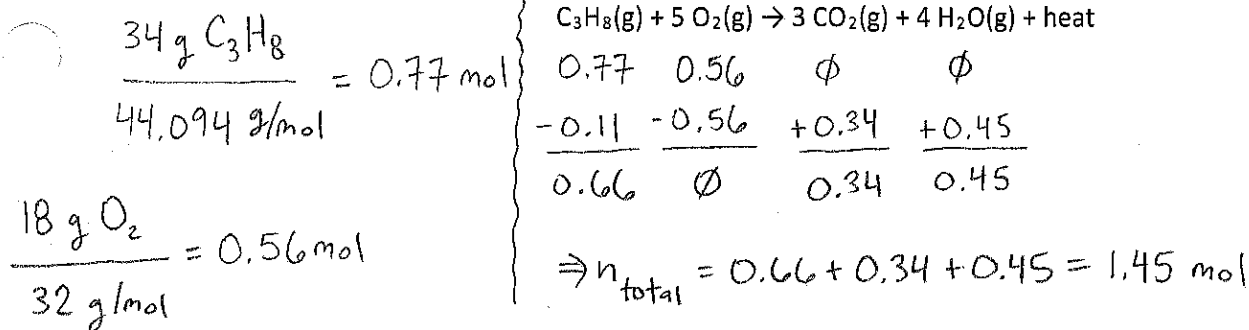 34 g C₃H₈
44.094 g/mol
= 0.77 mol
18 g O₂
32 g/mol
= 0.56 mol
C₃H₈(g) + 5 O₂(g) → 3 CO₂(g) + 4 H₂O(g) + heat
0.77 0.56 ϕ ϕ
-0.11 -0.56 +0.34 +0.45
0.66 Ø 0.34 0.45
⇒ n total = 0.66 + 0.34 + 0.45 = 1.45 mol